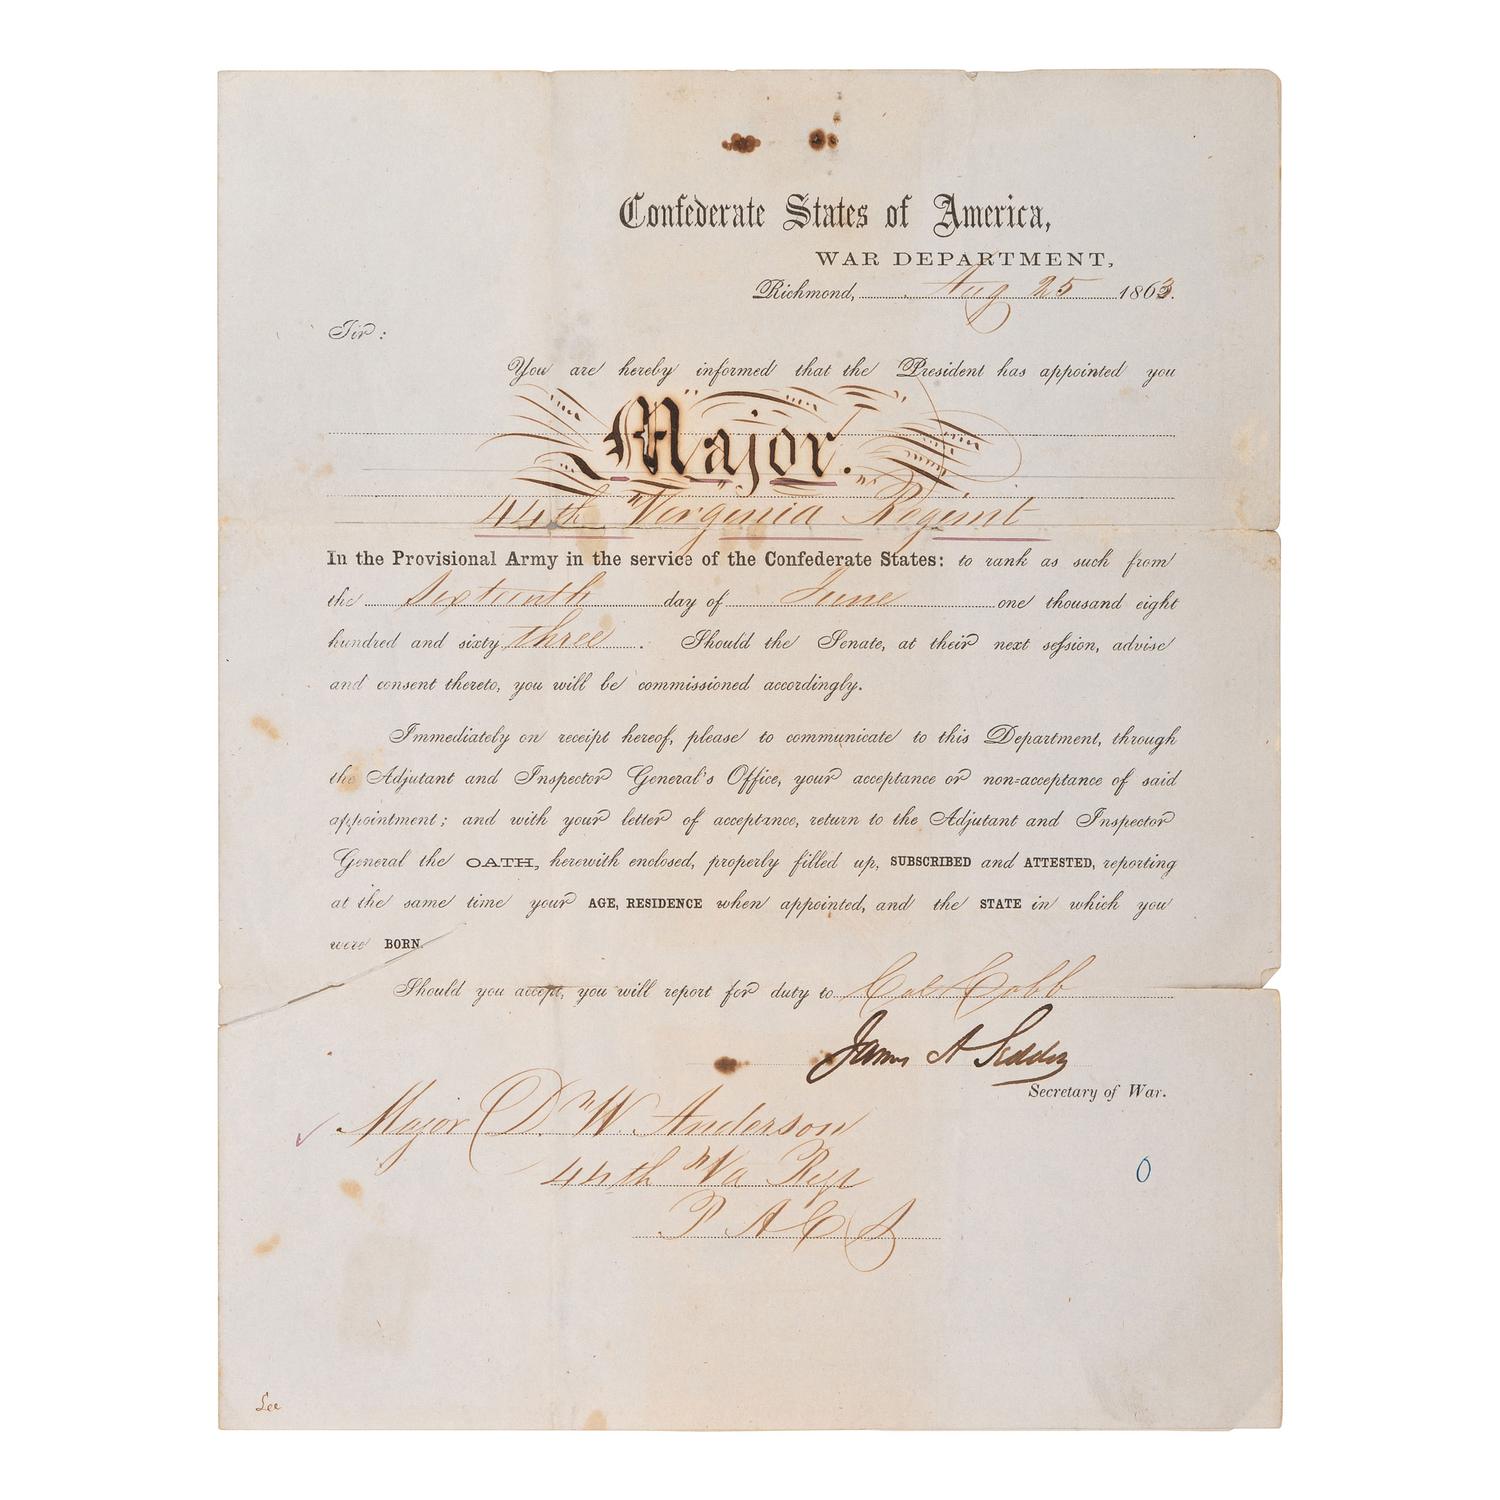 Confederate States of America,
WAR DEPARTMENT,
Richmond, Aug 25 1863.
Sir:
You are hereby informed that the President has appointed you
Major.
44th Virginia Regimt
In the Provisional Army in the service of the Confederate States: to rank as such from
the Sixteenth day of June one thousand eight
hundred and sixty three. Should the Senate, at their next session, advise
and consent thereto, you will be commissioned accordingly.
Immediately on receipt hereof, please to communicate to this Department, through
the Adjutant and Inspector General's Office, your acceptance or non=acceptance of said
appointment; and with your letter of acceptance, return to the Adjutant and Inspector
General the OATH, herewith enclosed, properly filled up, SUBSCRIBED and ATTESTED, reporting
at the same time your AGE, RESIDENCE when appointed, and the STATE in which you
were BORN.
Should you accept, you will report for duty to Col Cobb
James A Seddon
Secretary of War.
Major D. W. Anderson
44th Va Regt
P A C S
0
Lee